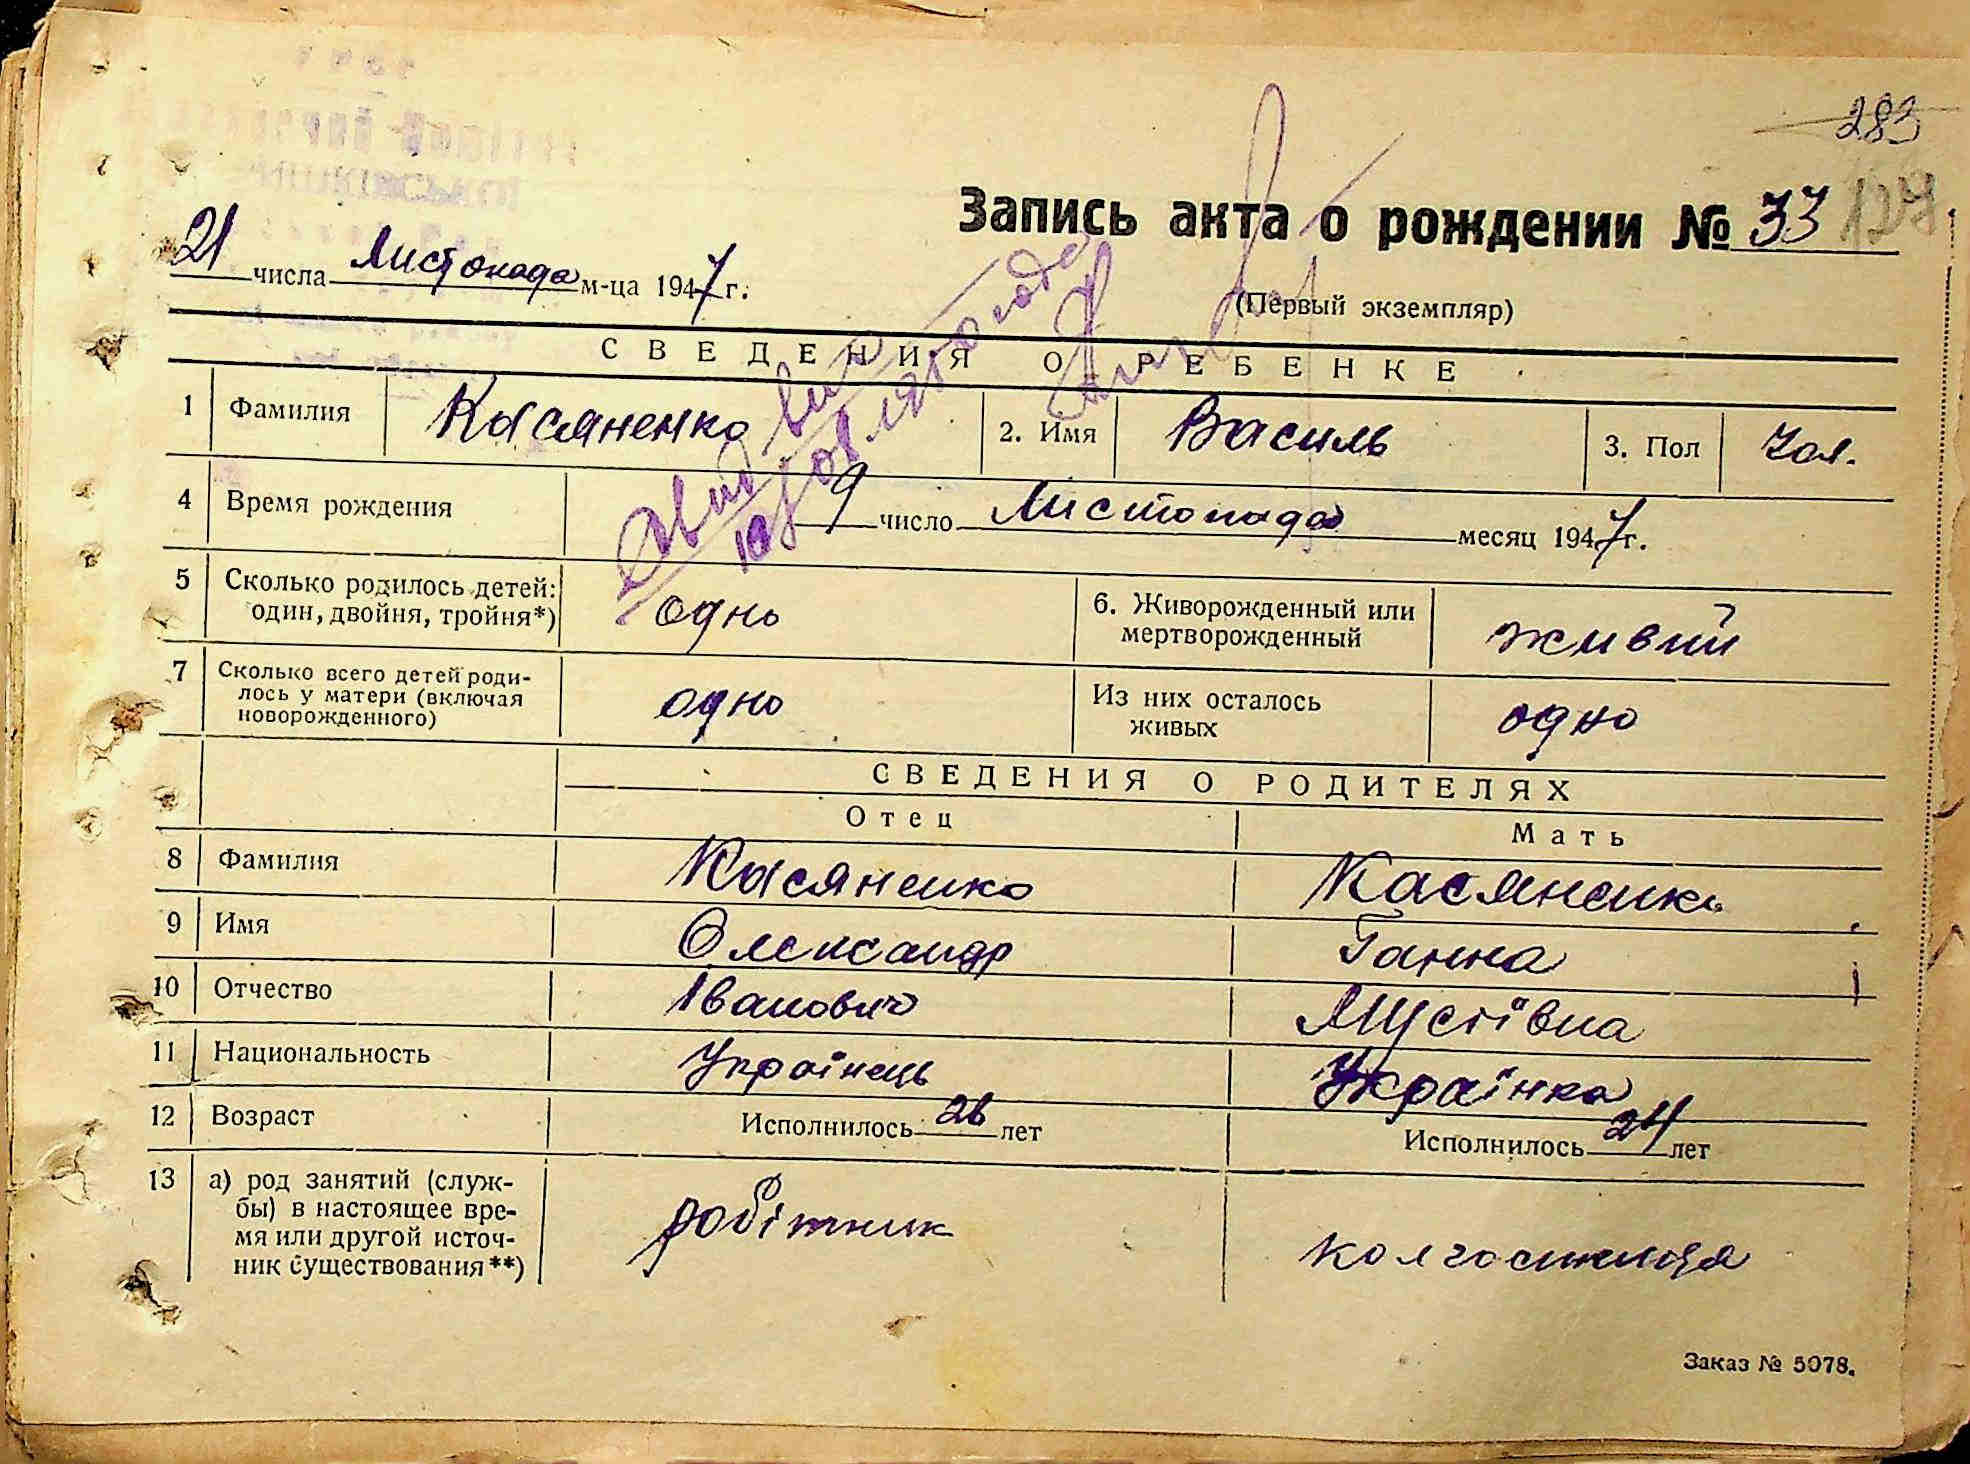 283
127
Запись акта о рождении № 33
21 числа Листопада м-ца 1947 г.
(Первый экземпляр)
СВЕДЕНИЯ О РЕБЕНКЕ
1 Фамилия Касяненко 2. Имя Василь 3. Пол Чол.
4 Время рождения 9 число Листопада месяц 1947 г.
5 Сколько родилось детей: один, двойня, тройня*) одно 6. Живорожденный или мертворожденный живий
7 Сколько всего детей родилось у матери (включая новорожденного) одно Из них осталось живых одно
СВЕДЕНИЯ О РОДИТЕЛЯХ
Отец Мать
8 Фамилия Касяненко Касяненко
9 Имя Олександр Ганна
10 Отчество Іванович Мусіївна
11 Национальность Українець Українка
12 Возраст Исполнилось 26 лет Исполнилось 24 лет
13 а) род занятий (службы) в настоящее время или другой источник существования**) робітник колгоспниця
Заказ № 5078.